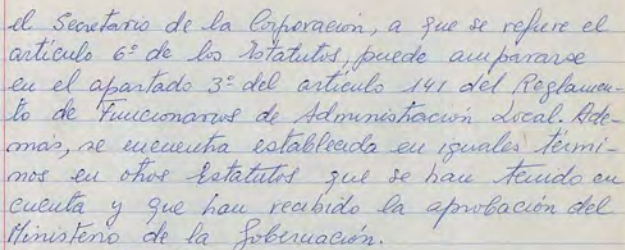 el Secretario de la Corporación, a que se refiere el
artículo 6º de los Estatutos, puede ampararse
en el apartado 3º del artículo 141 del Reglamen-
to de Funcionarios de Administración Local. Ade-
más, se encuentra establecida en iguales térmi-
nos en otros Estatutos que se han tenido en
cuenta y que han recibido la aprobación del
Ministerio de la Gobernación.